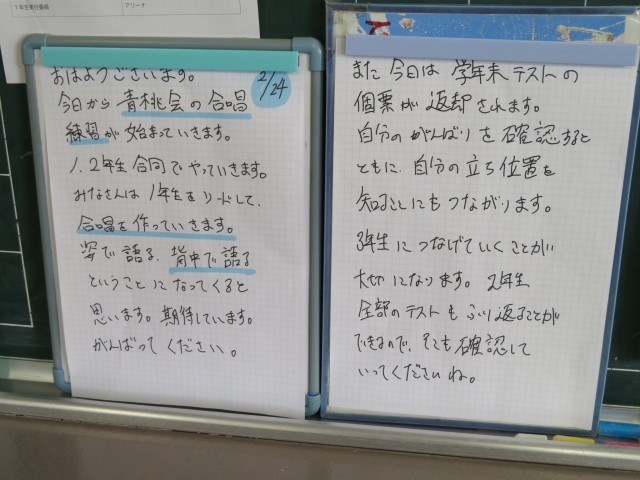 1年生実行委員
アリーナ
おはようございます。
2/24
今日から 青桃会の合唱
練習が 始まっていきます。
1.2年生合同でやっていきます。
みなさんは 1年生をリードして、
合唱を作っていきます。
姿で語る、背中で語る
ということになってくると
思います。期待しています。
がんばってください。
また今日は 学年末テストの
個票が返却されます。
自分のがんばりを確認すると
ともに、自分の立ち位置を
知ることにもつながります。
3年生につなげていくことが
大切になります。2年生
全部のテストもふり返ることが
できるので、そこも確認して
いってくださいね。